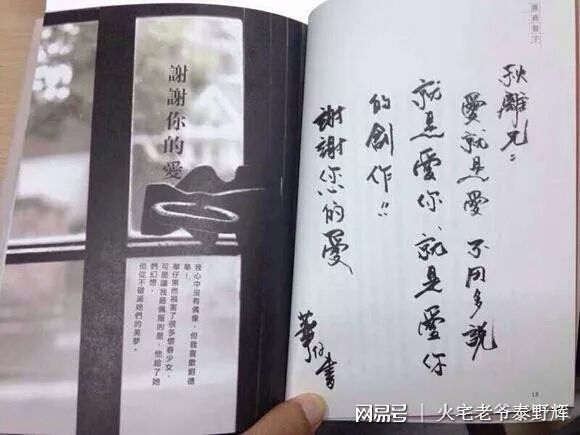 謝謝你的愛
我心中沒有偶像，但我喜歡劉德
華！
華仔果然禍害了很多懷春少女，
可是讓我最佩服的是，他給了她
們幻想，
但從不破滅她們的美夢。
秋離兄：
愛就是愛 不用多說
就是愛你 就是愛你
的創作!!
謝謝您的愛
華仔書
网易号 | 火宅老爷泰野辉